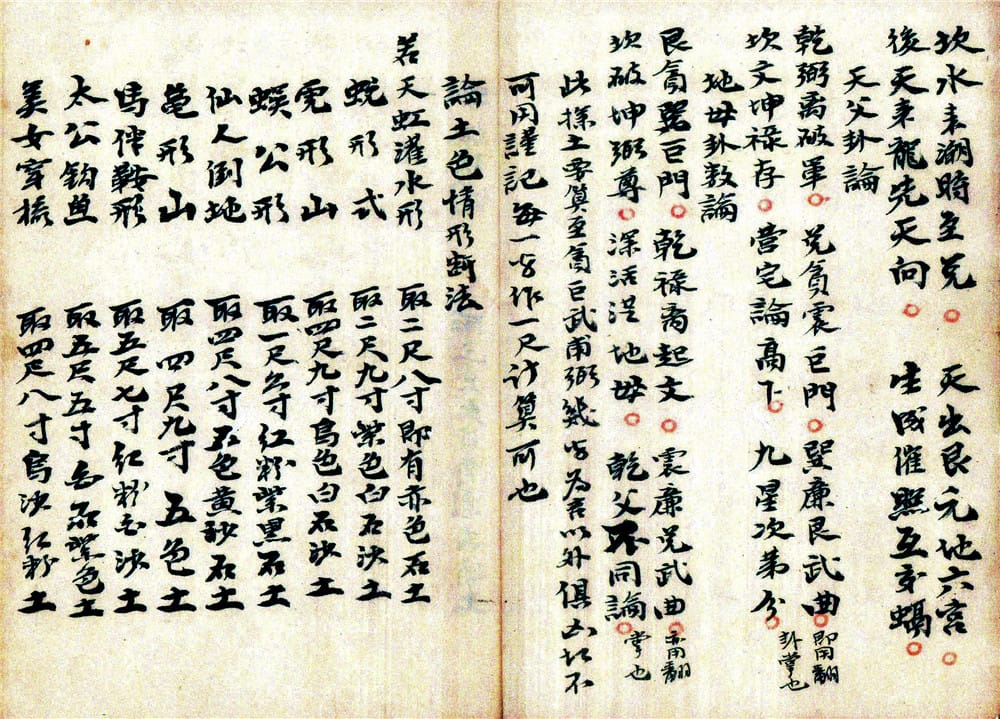 坎水未潮時至兌 天出艮元地六宮
後天來龍先天向 生成催照互交蝸
天父卦論
乾弼离破軍 兌貪震巨門 巽廉艮武曲 即用翻卦掌也
坎文坤祿存 营宅論高下 九星次第分
地母卦数論
艮貪巽巨門 乾祿离起文 震廉兌武曲 亦用翻掌也
坎破坤弼尊 深活浞地母 乾父不同論
此探土要算至貪巨武甫弼幾步为吉以外俱凶切不
可用謹記每一步作一尺计算可也
論土色情形断法
若天虹濯水形 取二尺八寸即有赤色石土
蜕形式 取二尺九寸紫色白石沙土
兜形山 取四尺九寸烏色白石沙土
蜈公形 取一尺八寸红粉紫黑石土
仙人倒地 取四尺八寸五色黄砂石土
黾形山 取四尺九寸五色土
馬伴鞍形 取五尺七寸红粉白沙土
太公钓魚 取五尺五寸白石紫色土
美女穿梭 取四尺八寸烏沙红粉土